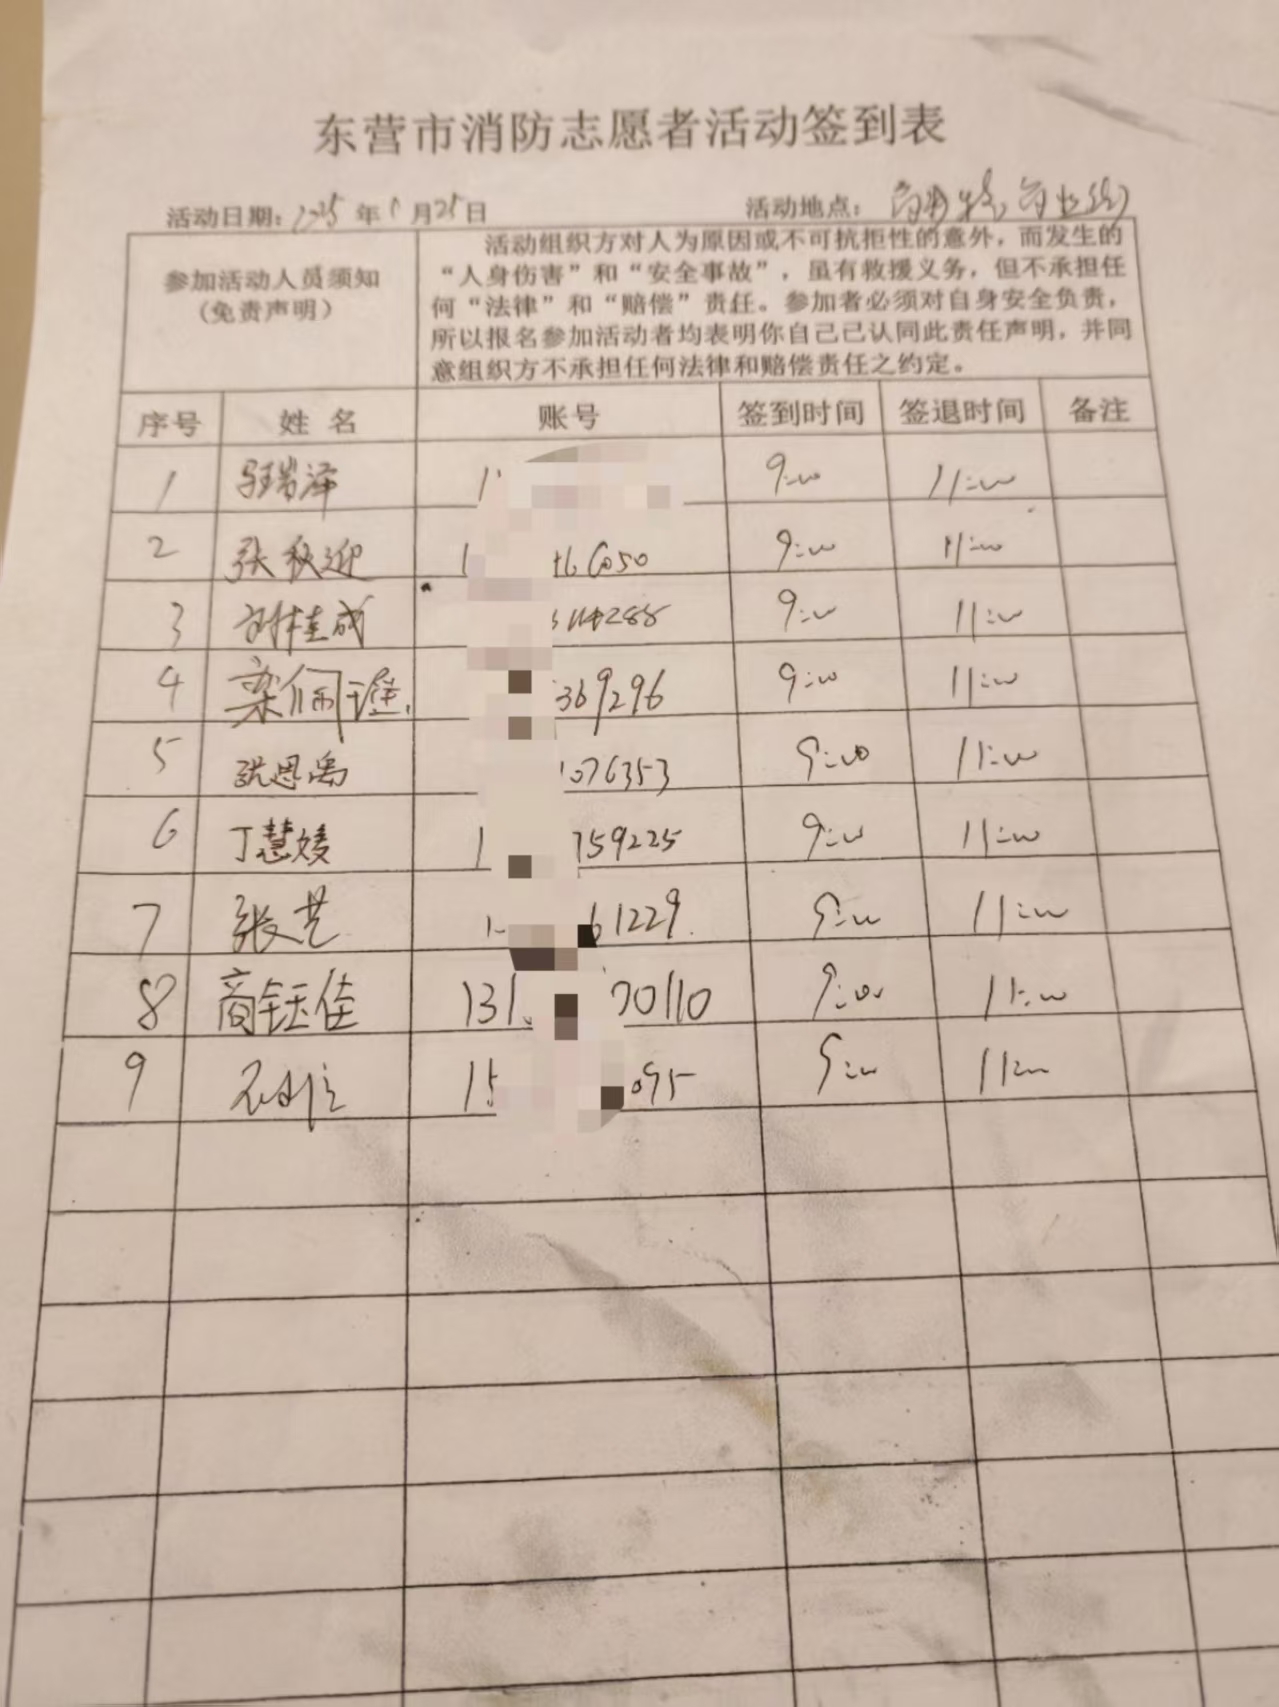 东营市消防志愿者活动签到表
活动日期: 2025 年 1 月 25 日 活动地点:
参加活动人员须知
(免责声明)
活动组织方对人为原因或不可抗拒性的意外，而发生的
“人身伤害”和“安全事故”，虽有救援义务，但不承担任
何“法律”和“赔偿”责任。参加者必须对自身安全负责，
所以报名参加活动者均表明你自己已认同此责任声明，并同
意组织方不承担任何法律和赔偿责任之约定。
序号 姓 名 账号 签到时间 签退时间 备注
1 1 9:00 11:00
2 张秋迎 1 6050 9:00 11:00
3 刘桂成 288 9:00 11:00
4 栾 369296 9:00 11:00
5 张恩禹 076353 9:00 11:00
6 丁慧媛 1 759225 9:00 11:00
7 张艺 1 61229 9:00 11:00
8 商钰佳 131 70110 9:00 11:00
9 15 095 9:00 11:00